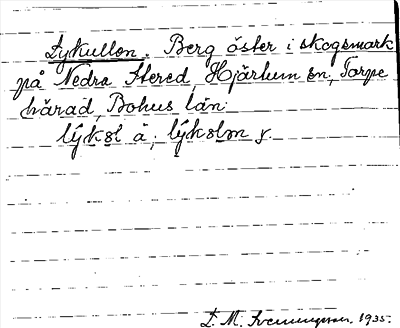 Lykullen. Berg öster i skogsmark
på Nedra Stered, Hjärtum sn, Torpe
härad, Bohus län.
lýkəl à, lýkələn y.
L. M. Svenungsson. 1935.